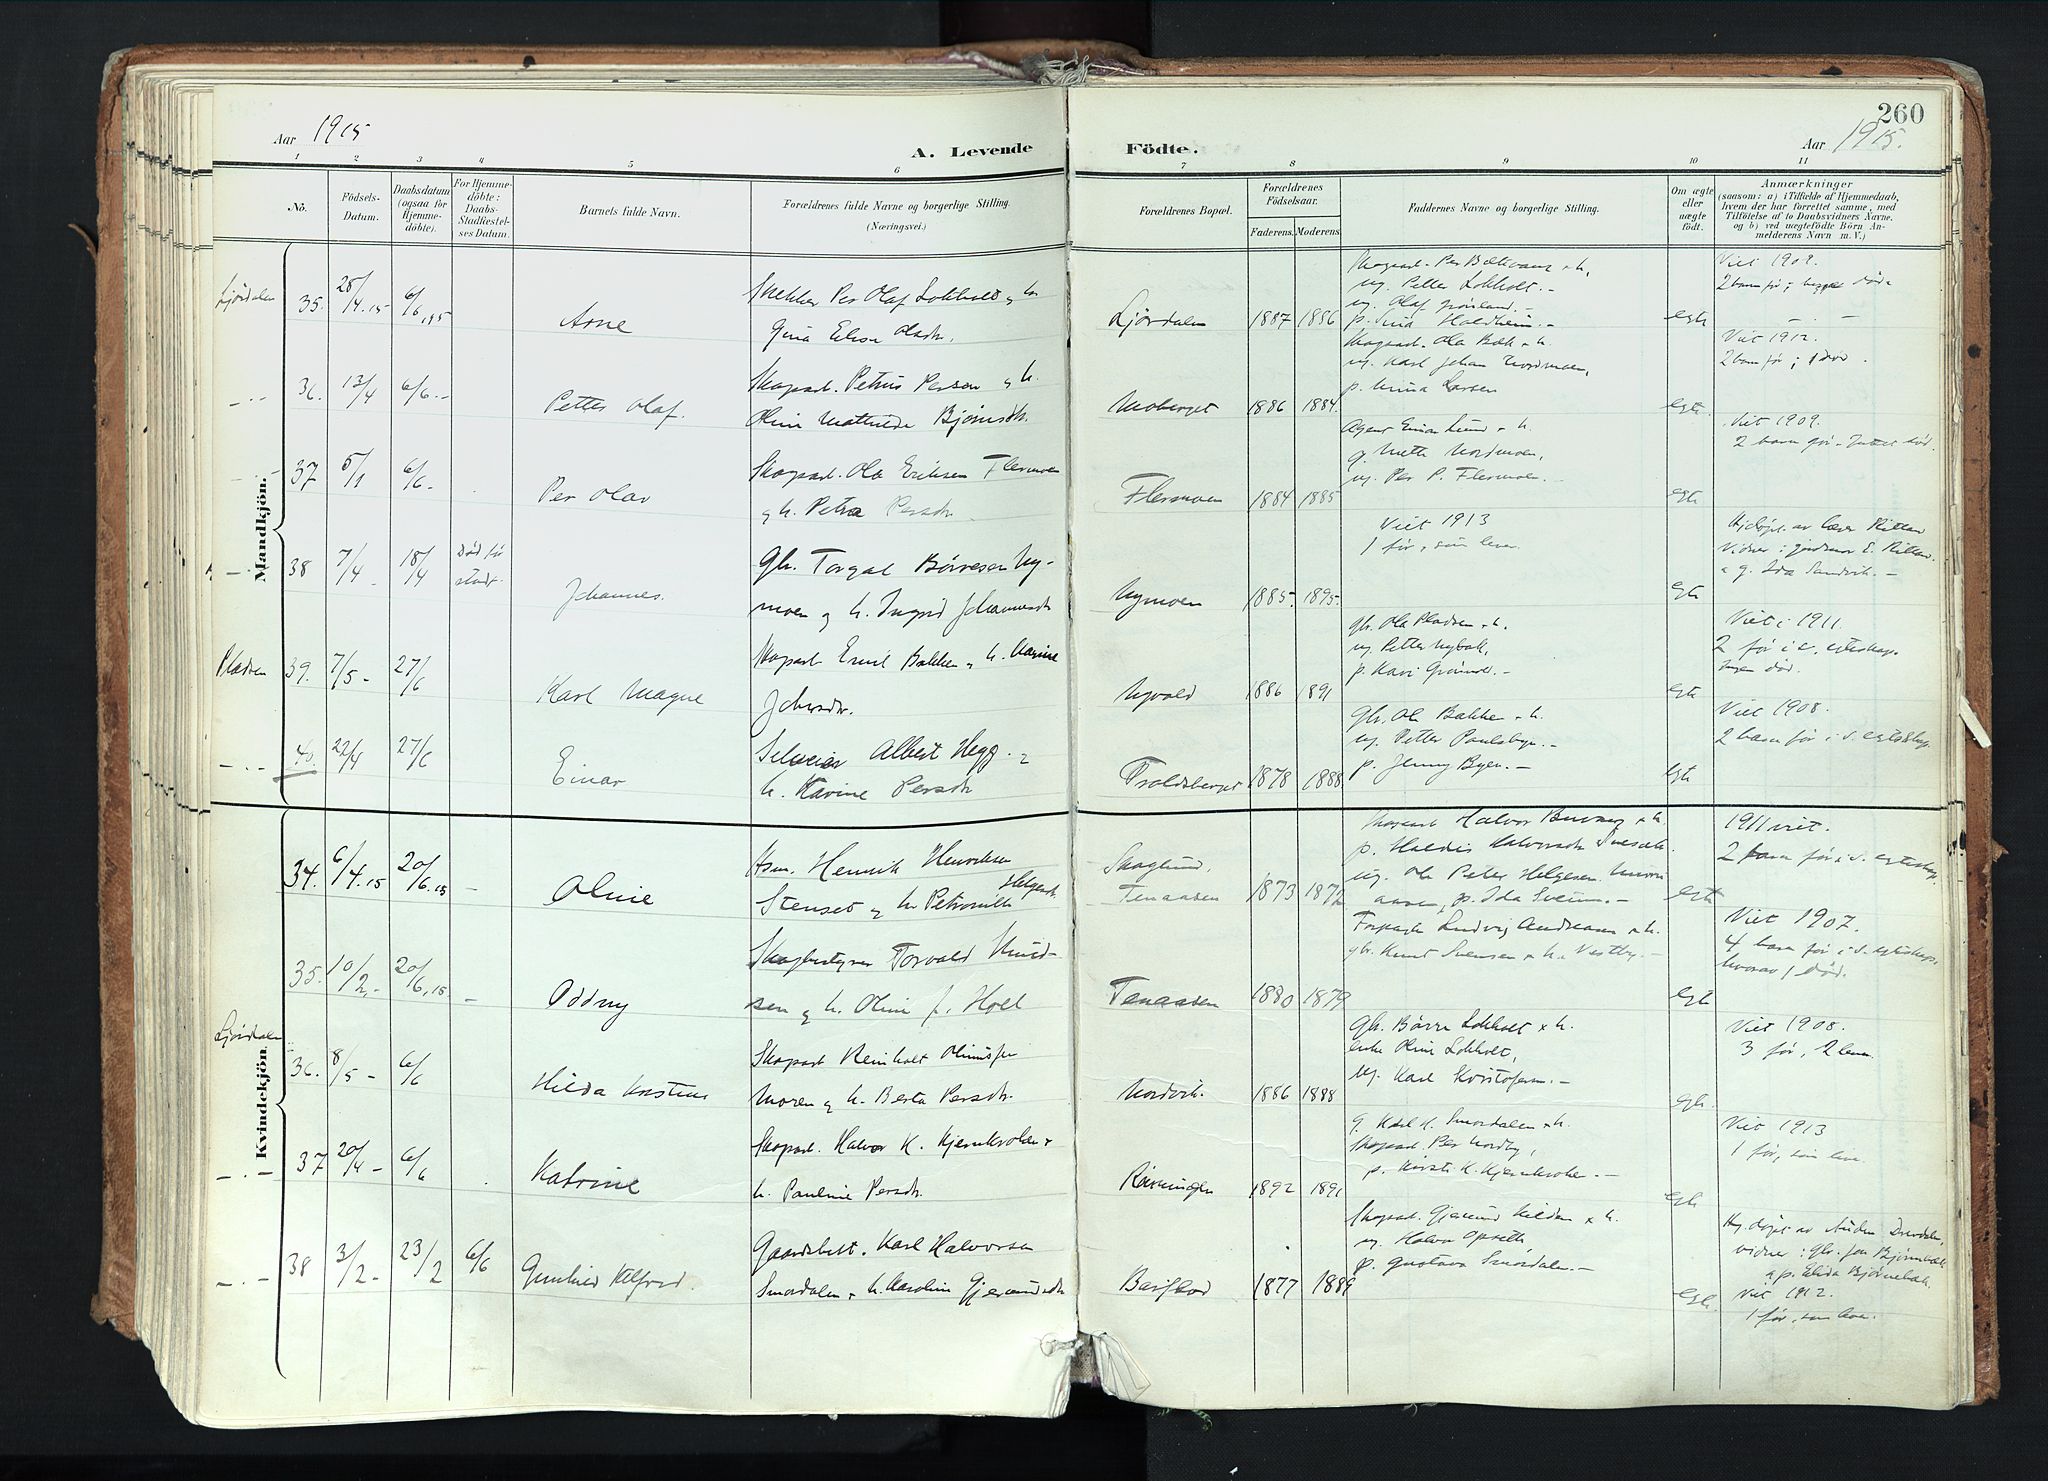 Aar 1915
A. Levende
Födte.
260
Aar 1915.
1 2 3 4 5 6 7 8 9 10 11
Nö.
Födsels-
Datum.
Daabsdatum
(ogsaa for
Hjemme-
döbte).
For Hjemme-
döbte:
Daabs-
Stadfæstel-
ses Datum.
Barnets fulde Navn.
Forældrenes fulde Navne og borgerlige Stilling.
(Næringsvei.)
Forældrenes Bopæl.
Forældrenes
Födselsaar.
Faderens.
Moderens.
Faddernes Navne og borgerlige Stilling.
Om ægte
eller
uægte
födt.
Anmærkninger
(saasom: a) i Tilfælde af Hjemmedaab,
hvem der har forrettet samme, med
Tilföielse af to Daabsvidners Navne,
og b) ved uægtefödte Börn An-
melderens Navn m. V.)
Mandkjön.
Ljørdalen 35. 28/4.15 6/6.15 Arne
Per Olaf Lokholt og h.
Gina Elise Olsdtr.
Ljørdalen 1887 1886
Skogsarb. Per
ug. Petter Lokholt.-
ug. Olaf Grønland.
egte
Viet 1909.
2 barn før, begge døde
36. 13/4 6/6.- Petter Olaf.
Skogsarb. Petrus Persen og h.
Oline Mathilde Bjørnsdtr.
Moberget 1886 1884.
Skogsarb. Ola Bæk o h.
ug. Karl Johan Nordmoen,
p. Mina Larsen
egte.
Viet 1912.
2 barn før; 1 død.
37 5/1 6/6- Per Olav
Skogsarb. Ola Eriksen Flermoen
og h. Petra Persdtr.
Flermoen 1884 1885
Agent Einar Lund o h.
g. Mette Nordmoen,
ug. Per P. Flermoen.-
egte
Viet 1909.
2 barn før
38 7/4 18/4 Død før
stadf. Johannes.
Gbr. Torgal Børresen Ny-
moen og h. Ingrid Johannesdtr
Nymoen 1885. 1895.
Viet 1913
1 før, som lever.
egte
Hjdøpt. av Lærer Rittan
Vidner: jordmor E. Rittan.
o g. Ida Sandvik.-
Plassen 39. 7/5- 27/6 Karl Magne
Skogsarb Emil Bakken og h. Karine
Johnsdtr.
Nyvold 1886 1891
gbr. Ola Pladsen o h.
ug. Petter Nybak,
p. Kari
egte
Viet i 1911.
2 før i s. egteskap.
Ingen død.
40. 22/4 27/6 Einar
Albert Hegg. og
h. Karine Persdtr
Troldsberget 1878 1888
Gbr. Ola Bakken o h.
ug. Petter Paulsbyn.-
p. Jenny Byen.-
egte
Viet 1908.
2 barn før i s. egteskap.
Kvindekjön.
34. 6/4.15 20/6.15 - Oline
Henrik Henriksen
Stenset og h. Petronille Helgesdtr.
Skoglund,
Tenaasen 1873 1872
Skogsarb Halvor o h.
p. Haldis Halvorsdtr
ug. Ole Peter Helgesen
aasen, p. Ida Sveum.-
egte
1911 viet.
2 barn før i s. egteskap.
35. 10/2- 20/6.15 - Oddny
Skogbestyrer Torvald Knud-
sen og h. Oline f. Holt
Tenaasen 1880 1879
Forpagter Ludvig Andreasen o h.
gbr. Knut Svensen o h. Vestby.-
egte
Viet 1907.
4 barn før i s. egteskap,
hvorav 1 død.
Ljørdalen 36. 8/5- 6/6 Hilda Kristine
Skogsarb Reinholt
Moren og h. Berta Persdtr.
Nordvik. 1886 1888
gbr. Børre Lokholt o h.
enke Oline Lokholt,
ug. Karl Kristofersen.-
egte.
Viet 1908.
3 før, 2 lever.
37 20/4- 6/6 Katrine
Skogsarb. Halvor K. Kjernkrolen o
h. Pauline Persdtr.
1892 1891
g. Karl H. Smørdalen o h.
Skogsarb. Per Nordby,
p. Kirsti K. Kjernkrolen.-
egte
Viet 1913
1 før, som lever.
38 3/2- 23/2 6/6 Gunhild Alfrid.
Gaardsbest. Karl Halvorsen
Smørdalen o h. Karoline Gjermundsdtr
1877 1889
Skogsarb. Gjermund Kilden o h.
ug. Halvor Opseth
p. Gustava Smørdalen.-
egte.
Hj. døpt av
vidner: Gbr. Jon Bjørnbæk
o p. Elida Bjørnebæk.
Viet 1912.
1 før, som lever.